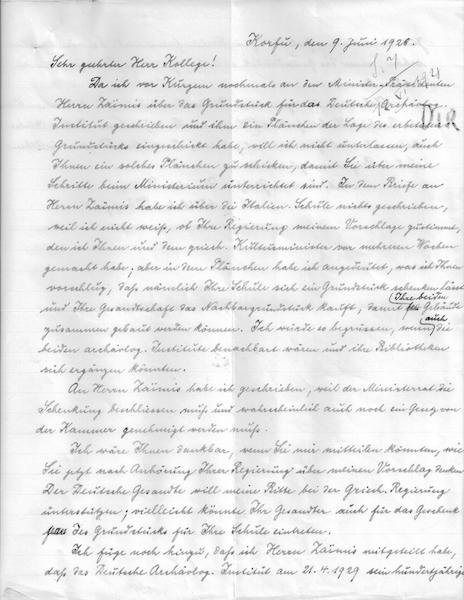 Korfu, den 9. Juni 1928.
Sehr geehrter Herr Kollege!
Da ich vor Kurzem nochmals an den Minister-Präsidenten
Herrn Zäimis über das Grundstück für das Deutsche Archäolog.
Institut geschrieben und ihm ein Plänchen der Lage des erbetenen
Grundstücks eingeschickt habe, will ich nicht unterlassen, auch
Ihnen ein solches Plänchen zu schicken, damit Sie über meine
Schritte beim Ministerium unterrichtet sind. In dem Briefe an
Herrn Zäimis habe ich über die Italien. Schule nichts geschrieben,
weil ich nicht weiß, ob Ihre Regierung meinem Vorschlage zustimmt,
den ich Ihnen und dem griech. Kultusminister vor mehreren Wochen
gemacht habe; aber in dem Plänchen habe ich angedeutet, was ich Ihnen
vorschlug, daß nämlich Ihre Schule sich ein Grundstück schenken lässt
und Ihre Gesandschaft das Nachbargrundstück kauft, damit Ihre beiden Gebäude
zusammen gebaut werden können. Ich würde es begrüssen, wenn auch die
beiden archäolog. Institute benachbart wären und ihre Bibliotheken
sich ergänzen könnten.
An Herrn Zäimis habe ich geschrieben, weil der Ministerrat die
Schenkung beschliessen muß und wahrscheinlich auch noch ein Gesetz von
der Kammer genehmigt werden muß.
Ich wäre Ihnen dankbar, wenn Sie mir mitteilen könnten, wie
Sie jetzt nach Anhörung Ihrer Regierung über meinen Vorschlag denken.
Der Deutsche Gesandte will meine Bitte bei der Griech. Regierung
unterstützen; vielleicht könnte Ihr Gesandter auch für das Geschenk
des Grundstücks für Ihre Schule eintreten.
Ich füge noch hinzu, daß ich Herrn Zäimis mitgeteilt habe,
daß das Deutsche Archäolog. Institut am 21.4.1929 sein hundertjähriges